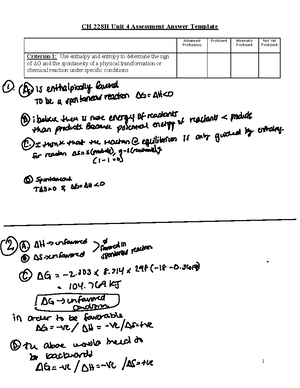 CH 228H Unit 4 Assessment Answer Template
Advanced Proficiency
Proficient
Minimally Proficient
Not Yet Proficient
Criterion 1: Use enthalpy and entropy to determine the sign
of ΔG and the spontaneity of a physical transformation or
chemical reaction under specific conditions
① Ⓐ is enthalpically favored
To be a spontaneous reaction ΔG = ΔH < 0
Ⓑ i believe there is more energy of reactants
than products because potential energy of reactant < products
Ⓒ I think that the reaction @ equilibrium if only guided by enthalpy.
for reaction
(1-1=0)
Ⓓ Spontaneous
TΔS=0 & ΔG=ΔH<0
② Ⓐ ΔH → unfavored
Ⓑ ΔS → unfavored
favored in
spontaneous reaction
Ⓒ ΔG = -2.303 × 8.314 × 298 (-18
= 104.769 KJ
ΔG → unfavored
conditions
in order to be favorable
ΔG = -ve / ΔH = -ve / ΔS = +ve
Ⓓ The above would need to
be backwards
ΔG = -ve / ΔH = -ve / ΔS = +ve
1